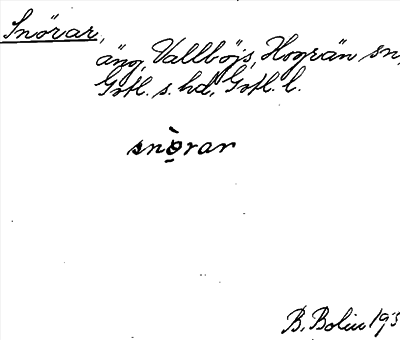 Snörar,
äng, Vallböjs, Hogrän sn,
Gotl. s. hd, Gotl. l.
snö̀rar
B. Bolin 193